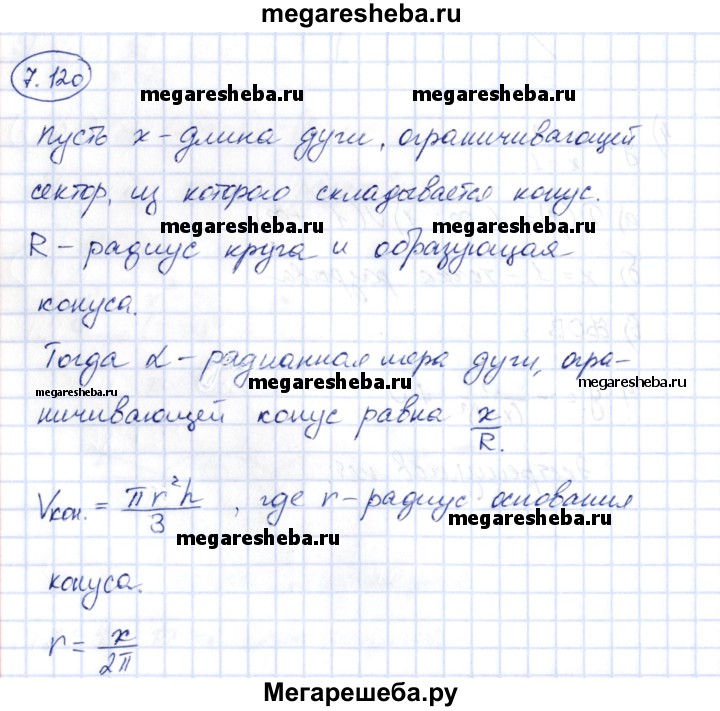 megaresheba.ru
7.120
megaresheba.ru megaresheba.ru
Пусть x - длина дуги, ограничивающей
сектор, из которого складывается конус.
megaresheba.ru megaresheba.ru
R - радиус круга и образующая
конуса.
Тогда α - радианная мера дуги, огра-
megaresheba.ru megaresheba.ru megaresheba.ru
ничивающей конус равна x/R.
Vкон. = πr²h/3, где r - радиус основания
megaresheba.ru megaresheba.ru
конуса.
r = x/2π
Мегарешеба.ру